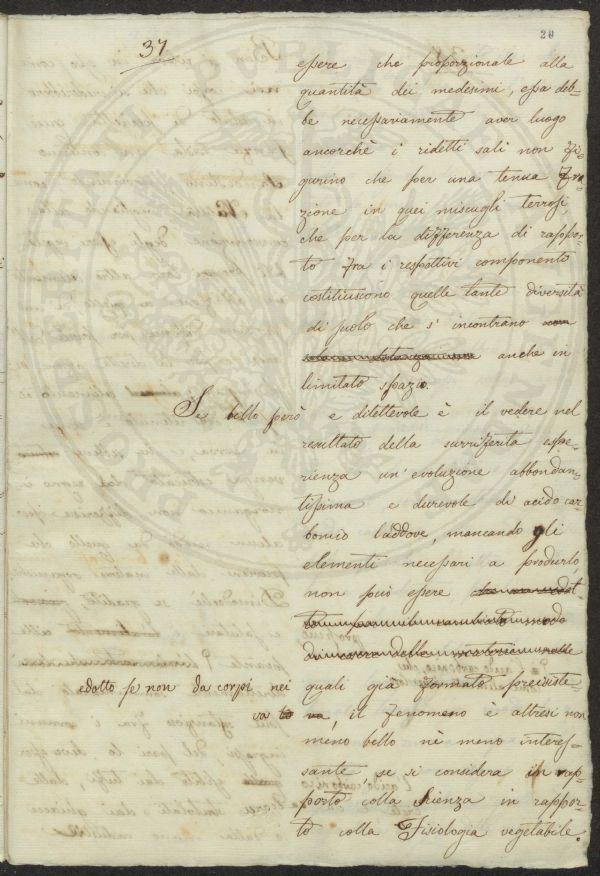 37
20
essere che proporzionale alla
quantità dei medesimi, essa deb-
be necessariamente aver luogo
ancorchè i ridetti sali non fi-
gurino che per una tenue fra-
zione in quei miscugli terrosi,
che per la differenza di rappor-
to fra i respettivi componenti
costituiscono quelle tante diversità
di suolo che s' incontrano non
anche in
limitato spazio.
Se bello però e dilettevole è il vedere nel
resultato della surriferita espe-
rienza un' evoluzione abbondan-
tissima e durevole di acido car-
bonico laddove, mancando gli
elementi necessari a produrlo
non può essere
edotto se non da corpi nei quali già formato preesiste-
va to va, il fenomeno è altresì non
meno bello nè meno interes-
sante se si considera in rap-
porto colla Scienza in rappor-
to colla Fisiologia vegetabile.